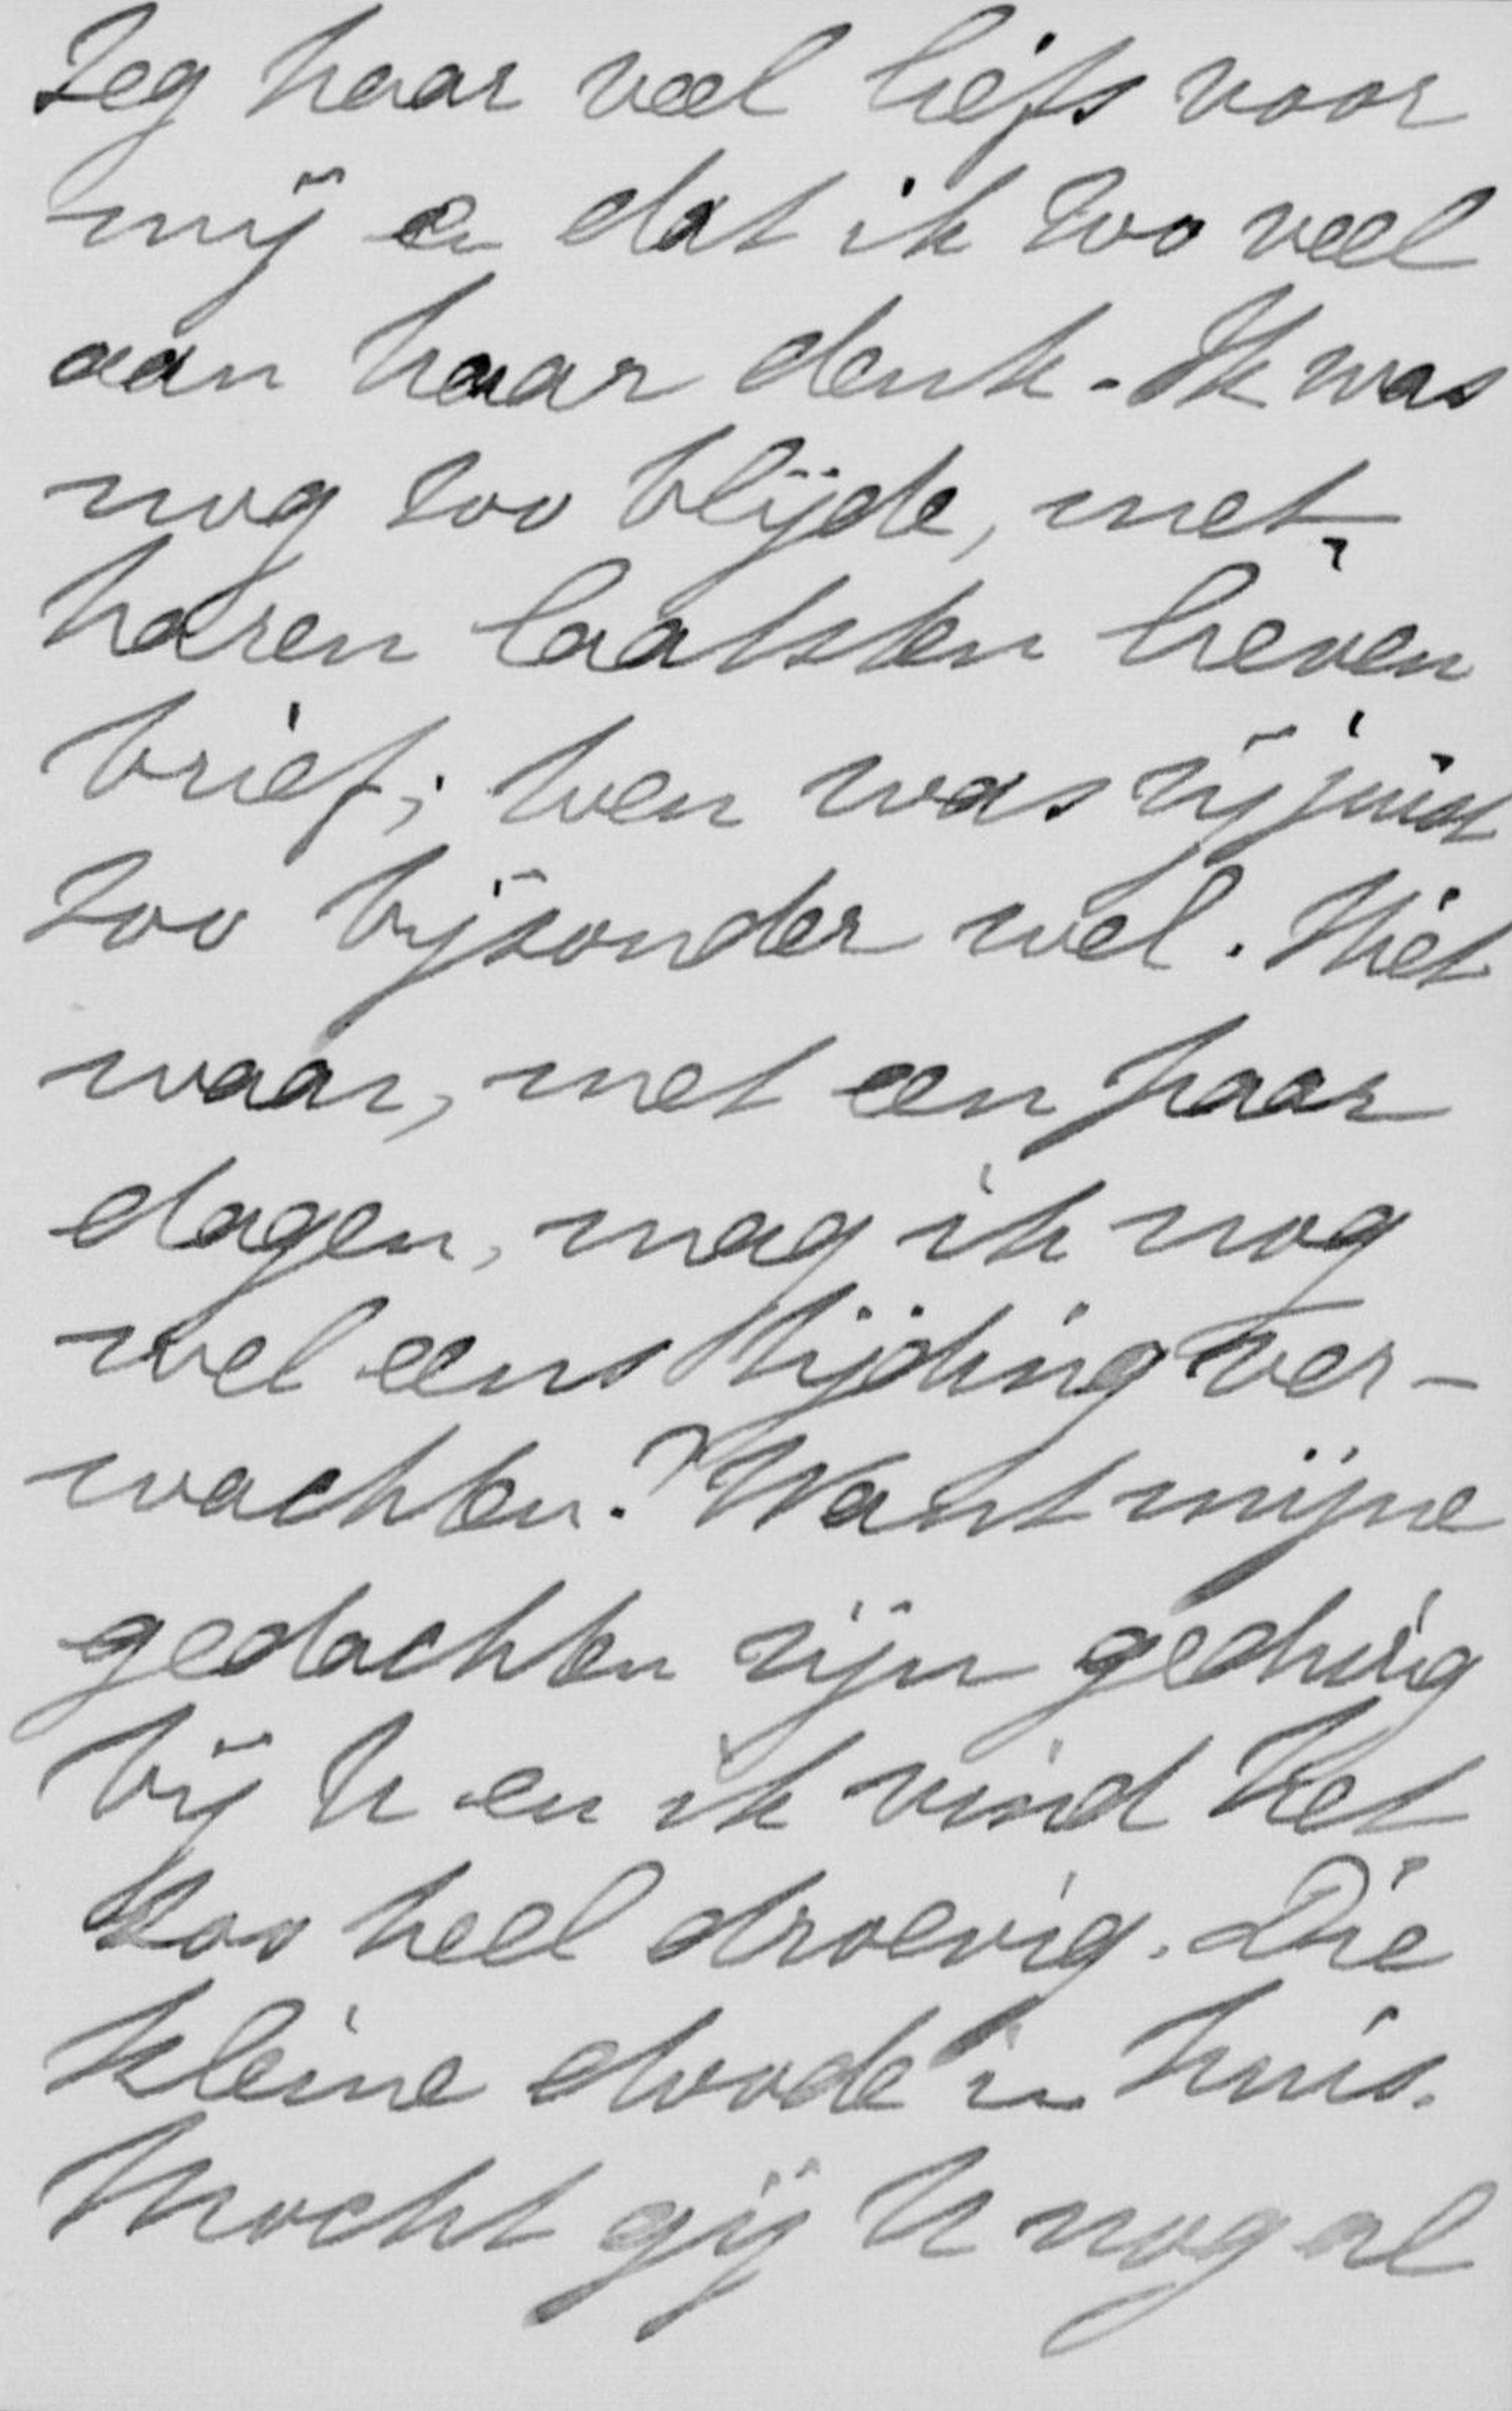 Zeg haar veel liefs voor
mij en dat ik zoo veel
aan haar denk - Ik was
nog zoo blijde, met
haren laatsten lieven
brief; toen was zij juist
zoo bijzonder wel. Niet
waar, met een paar
dagen, mag ik nog
wel eens tijding ver-
wachten? Want mijne
gedachten zijn gedurig
bij U en ik vind het
zoo heel droevig. Die
kleine doode in huis.
Mocht gij U nog al